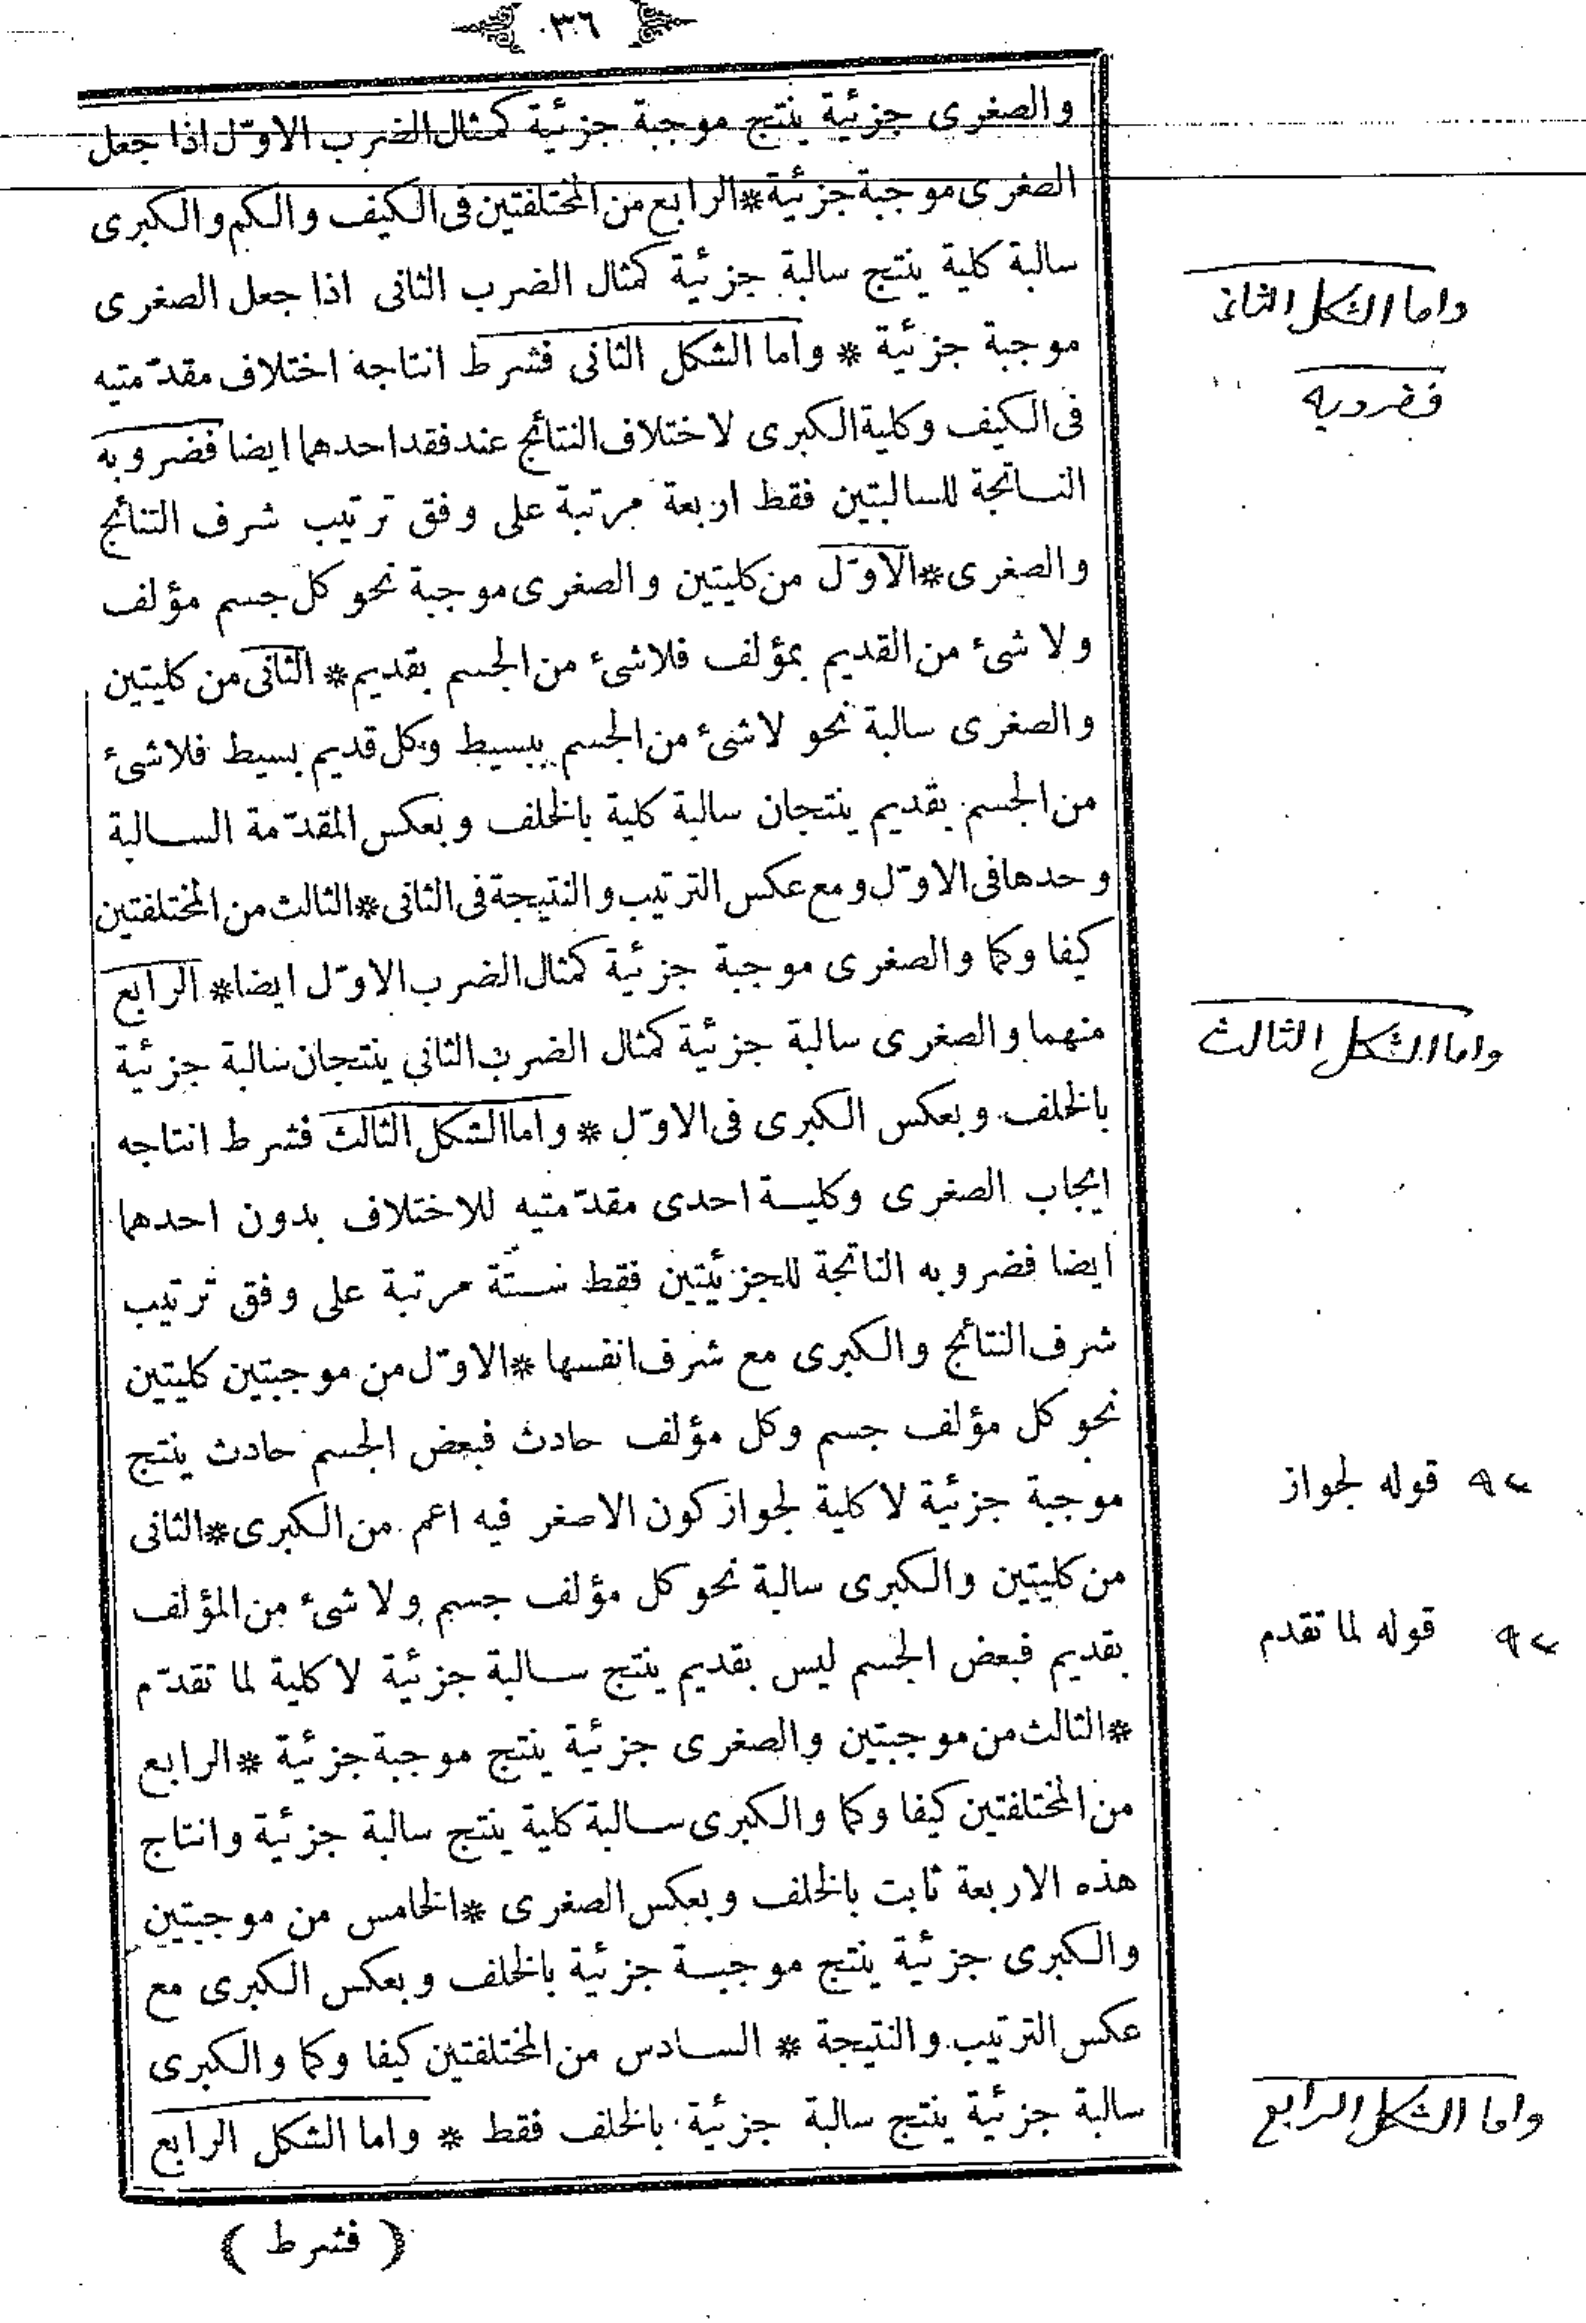 ٣٦
والصغرى جزئية ينتج موجبة جزئية كمثال الضرب الاوّل اذا جعل
الصغرى موجبة جزئية * الرابع من المختلفتين فى الكيف والكم والكبرى
سالبة كلية ينتج سالبة جزئية كمثال الضرب الثانى اذا جعل الصغرى
موجبة جزئية * واما الشكل الثانى فشرط انتاجه اختلاف مقدّمتيه
فى الكيف وكلية الكبرى لاختلاف النتائج عند فقد احدهما ايضا فضروبه
الناتجة للسالبتين فقط اربعة مرتبة على وفق ترتيب شرف النتائج
والصغرى * الاوّل من كليتين والصغرى موجبة نحو كل جسم مؤلف
ولا شئ من القديم بمؤلف فلاشئ من الجسم بقديم * الثانى من كليتين
والصغرى سالبة نحو لاشئ من الجسم ببسيط وكل قديم بسيط فلاشئ
من الجسم بقديم ينتجان سالبة كلية بالخلف وبعكس المقدّمة السالبة
وحدها فى الاوّل ومع عكس الترتيب والنتيجة فى الثانى * الثالث من المختلفتين
كيفا وكما والصغرى موجبة جزئية كمثال الضرب الاوّل ايضا * الرابع
منهما والصغرى سالبة جزئية كمثال الضرب الثاني ينتجان سالبة جزئية
بالخلف وبعكس الكبرى فى الاوّل * واما الشكل الثالث فشرط انتاجه
ايجاب الصغرى وكلية احدى مقدّمتيه للاختلاف بدون احدهما
ايضا فضروبه الناتجة للجزئيتين فقط ستّة مرتبة على وفق ترتيب
شرف النتائج والكبرى مع شرف انفسها * الاوّل من موجبتين كليتين
نحو كل مؤلف جسم وكل مؤلف حادث فبعض الجسم حادث ينتج
موجبة جزئية لا كلية لجواز كون الاصغر فيه اعم من الكبرى * الثانى
من كليتين والكبرى سالبة نحو كل مؤلف جسم ولا شئ من المؤلف
بقديم فبعض الجسم ليس بقديم ينتج سالبة جزئية لا كلية لما تقدّم
* الثالث من موجبتين والصغرى جزئية ينتج موجبة جزئية * الرابع
من المختلفتين كيفا وكما والكبرى سالبة كلية ينتج سالبة جزئية وانتاج
هذه الاربعة ثابت بالخلف وبعكس الصغرى * الخامس من موجبتين
والكبرى جزئية ينتج موجبة جزئية بالخلف وبعكس الكبرى مع
عكس الترتيب والنتيجة * السادس من المختلفتين كيفا وكما والكبرى
سالبة جزئية ينتج سالبة جزئية بالخلف فقط * واما الشكل الرابع
( فشرط )
واما الشكل الثانى
فضروبه
واما الشكل الثالث
قوله لجواز
قوله لما تقدم
واما الشكل الرابع